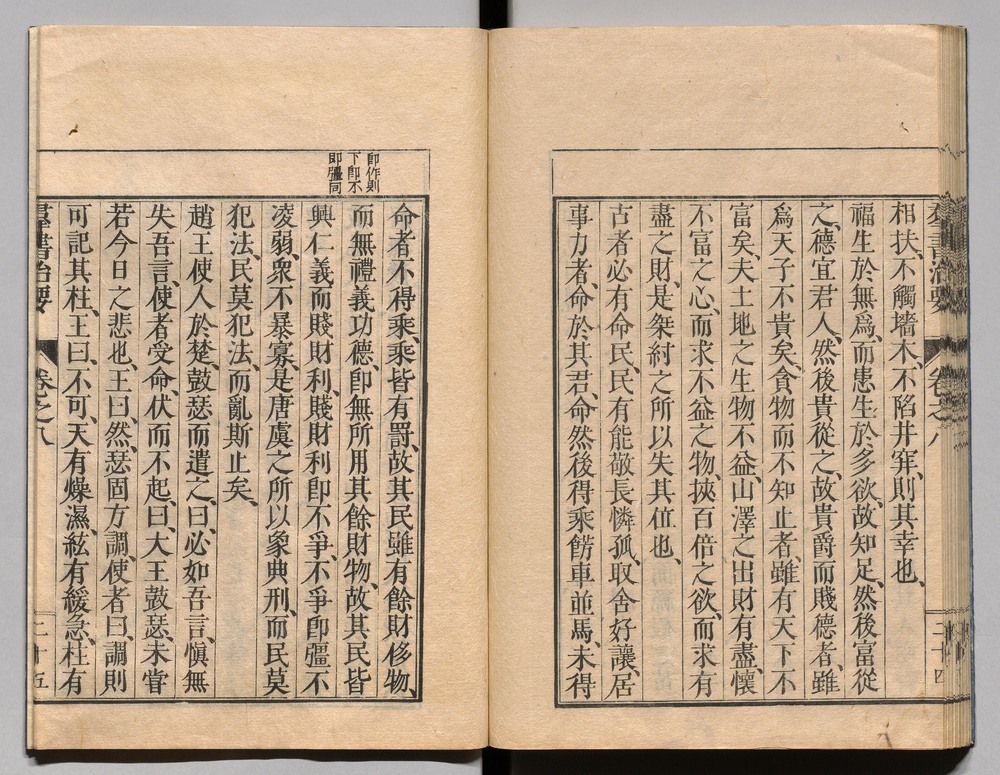 羣書治要 卷之八 二十四
相扶、不觸墻木、不陷井穽、則其幸也、
福生於無爲、而患生於多欲、故知足、然後富從
之、德宜君人、然後貴從之、故貴爵而賤德者、雖
爲天子不貴矣、貪物而不知止者、雖有天下不
富矣、夫土地之生物不益、山澤之出財有盡、懷
不富之心、而求不益之物、挾百倍之欲、而求有
盡之財、是桀紂之所以失其位也、
古者必有命民、民有能敬長憐孤、取舍好讓、居
事力者、命於其君、命然後得乘餝車並馬、未得
即作則
下即不
即彊同
命者不得乘、乘皆有罰、故其民雖有餘財侈物、
而無禮義功德、即無所用其餘財物、故其民皆
興仁義而賤財利、賤財利即不爭、不爭即彊不
凌弱、衆不暴寡、是唐虞之所以象典刑、而民莫
犯法、民莫犯法、而亂斯止矣、
趙王使人於楚、鼓瑟而遣之、曰、必如吾言、愼無
失吾言、使者受命、伏而不起、曰、大王鼓瑟、未甞
若今日之悲也、王曰、然、瑟固方調、使者曰、調則
可記其柱、王曰、不可、天有燥濕、絃有緩急、柱有
羣書治要 卷之八 二十五